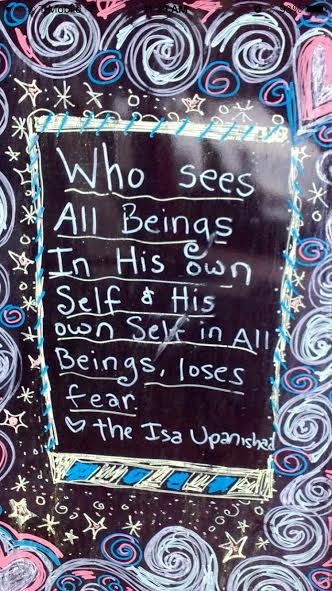 Who sees
All Beings
In His own
Self & His
own Self in All
Beings, loses
fear
♡ the Isa Upanishad